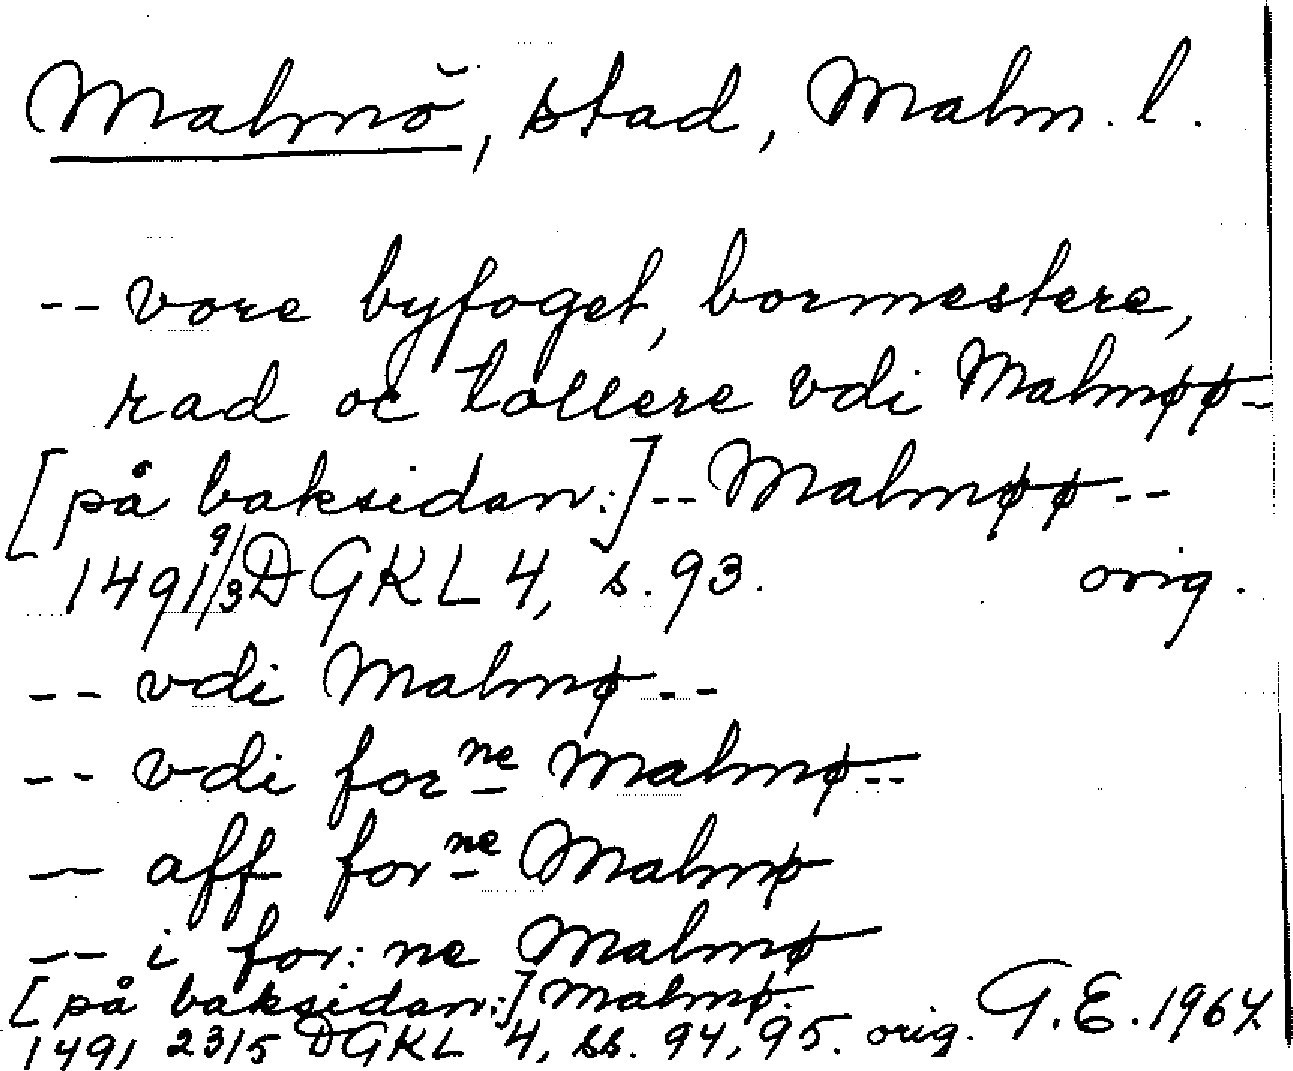 Malmö, stad, Malm. l.
-- vore byfoget, bormestere,
rad oc tollere vdi Malmøø--
[på baksidan:] -- Malmøø --
1491 9/3 DGKL 4, s. 93. orig.
-- vdi Malmø --
-- vdi forne Malmø --
-- aff forne Malmø
-- i for: ne Malmø
[på baksidan:] Malmø. G.E. 1967
1491 23/5 DGKL 4, ss. 94, 95. orig.